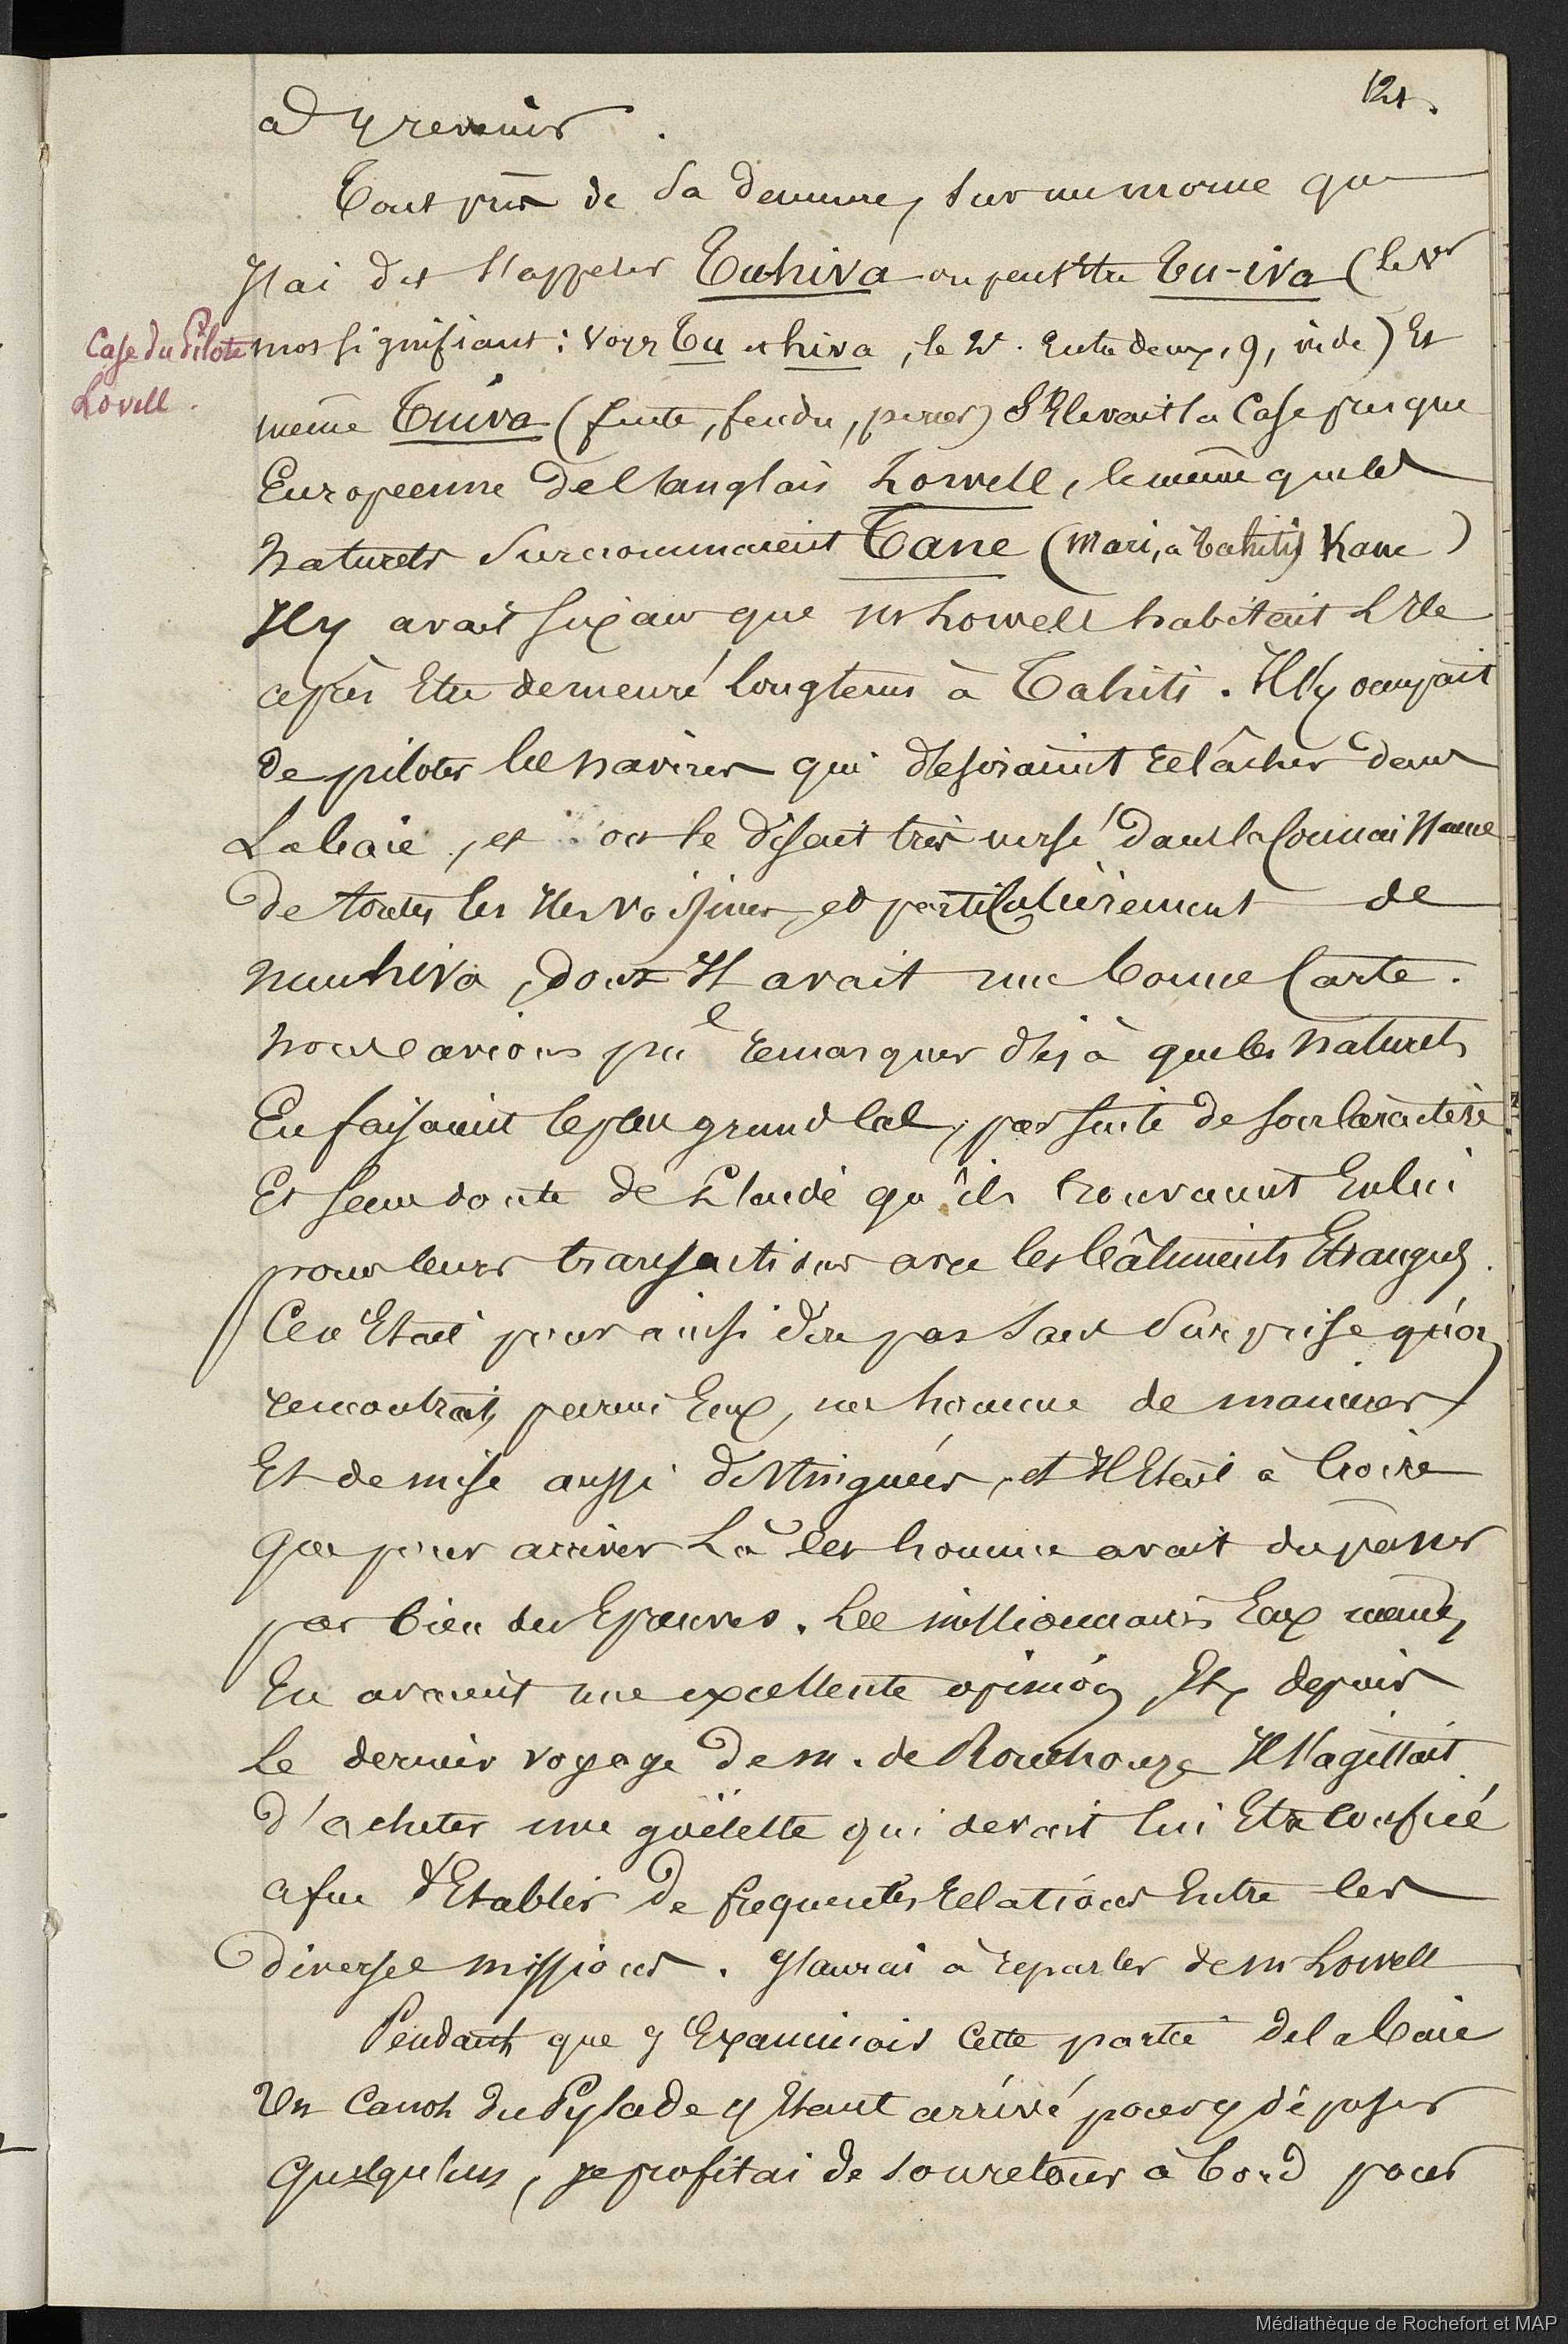 121.
ad y revenir.
Tout près de sa demeure, sur un morne que
j'ai dit s'appeler Tuhiva ou peut être Tu-iva (le Vr
Case du Pilote
Lovell.
mot signifiant : voyr Tu et hiva, le V. entre deux, 9, vide) Et
même Tuiva (fente, fendu, percer) s'Elevait la Case presque
Europeenne de l'anglais Lowell, le même que les
naturels surnommaient Tane (Mari, à Tahiti) Kane)
Il y avait six ans que Mr Lowell habitait L'Ile
après Etre demeuré longtems à Tahiti. Il s'y occupait
de piloter les navires qui desiraient relâcher dans
La baie, et on le disait très versé dans la Connaissance
de toutes les Iles voisines, et particulièrement de
nuuhiva, dont Il avait une bonne Carte.
nous avions pu remarquer déjà que les naturels
En faisaient le plus grand Cas, par suite de son Caractère
Et sans doute de L'aide qu'ils trouvaient En lui
pour leurs transactions avec les bâtiments Etrangers.
Ce n'Etait pour ainsi dire pas sans surprise qu'on
rencontrait parmi Eux, un homme de manieres
Et de mise aussi distinguées, et Il Etait à Croire
que pour arriver Là cet homme avait du passer
par bien des Epreuves. Les missionnaires Eux memes
En avaient une excellente opinion, Et, depuis
Le dernier voyage de m. de Rouchouze Il s'agissait
d'acheter une goëlette qui devait lui Etre Confiée
afin d'Etablir de frequentes relations Entre les
diverses missions. J'aurai à reparler de mr Lowell
Pendant que j'Examinais Cette partie de la baie
Un Canot du Pylade y Etant arrivé pour y déposer
quelqu'un, je profitai de son retour à bord pour
Médiathèque de Rochefort et MAP